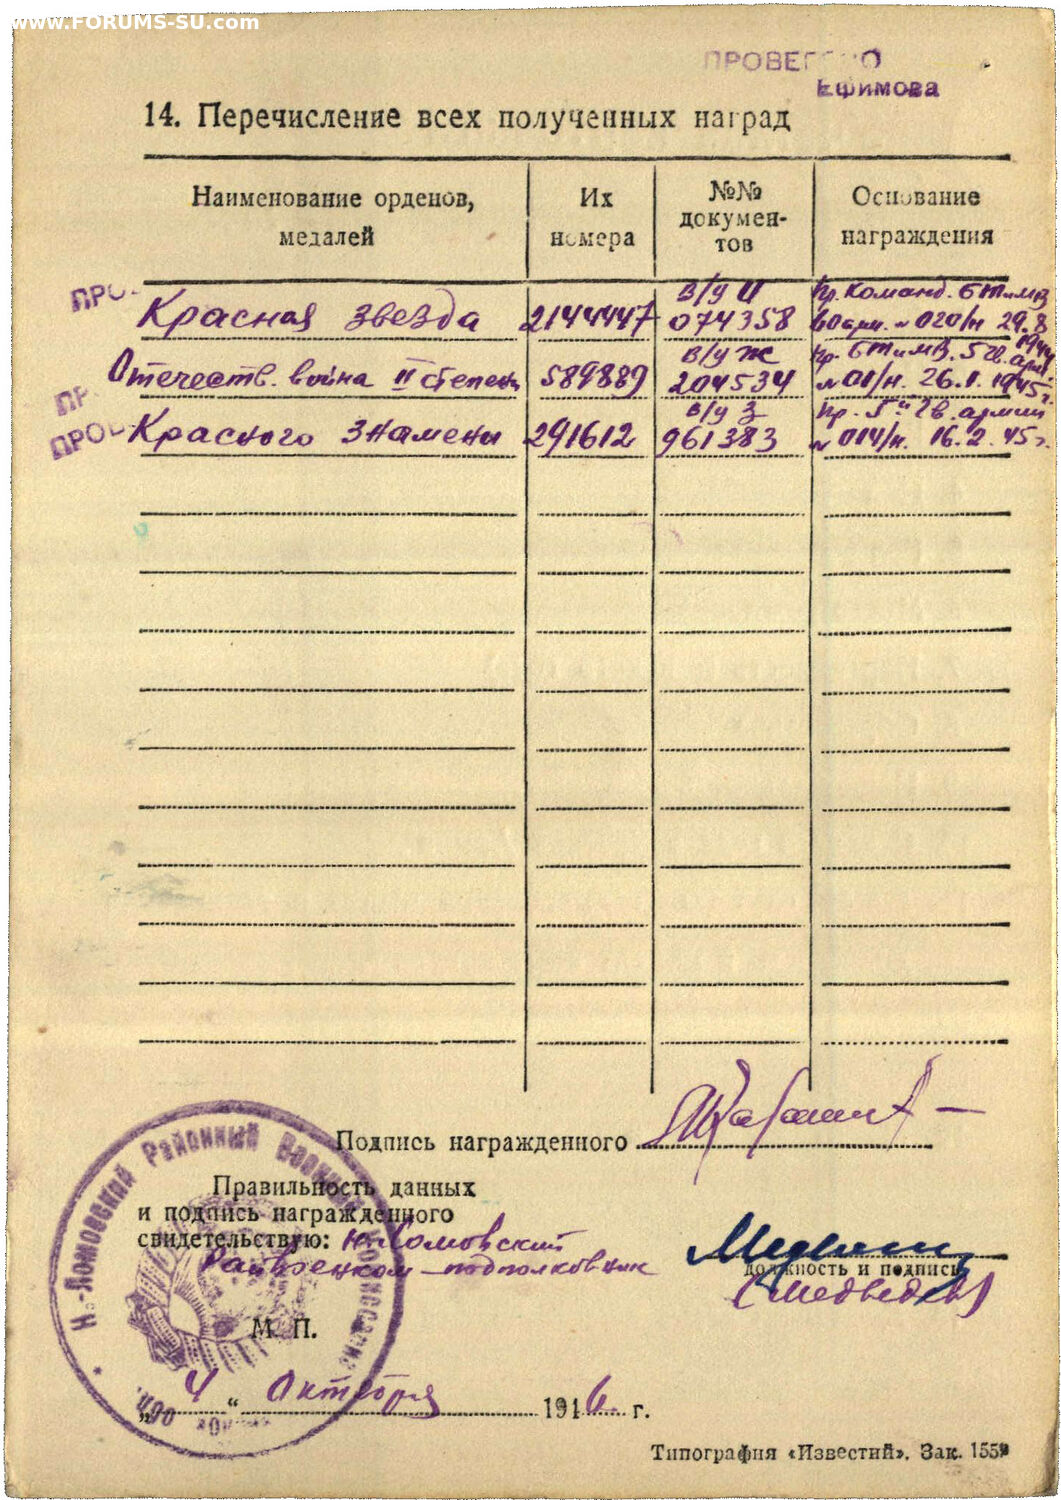 www.FORUMS-SU.com
ПРОВЕРЕНО
Ефимова
14. Перечисление всех полученных наград
Наименование орденов, медалей
Их номера
№№ докумен-тов
Основание награждения
Красная звезда 2144447 в/у И 074358 Пр. Команд. БТ и МВ 60 арм. №020/н 29.8 1944
Отечеств. война II степени 589889 в/у Ж 204534 Пр. БТ и МВ. 5 гв. арм. №01/н. 26.1.1945 г.
Красного Знамени 291612 в/у З 961383 Пр. 5й гв. армии №014/н. 16.2.45 г.
Подпись награжденного
Правильность данных
и подпись награжденного
свидетельствую: Н. Ломовский
Райвоенком - подполковник
должность и подпись
(Медведев)
М. П.
„4“ Октября 1946 г.
Н.-Ломовский Районный Военный Комиссариат
Типография «Известий». Зак. 1559